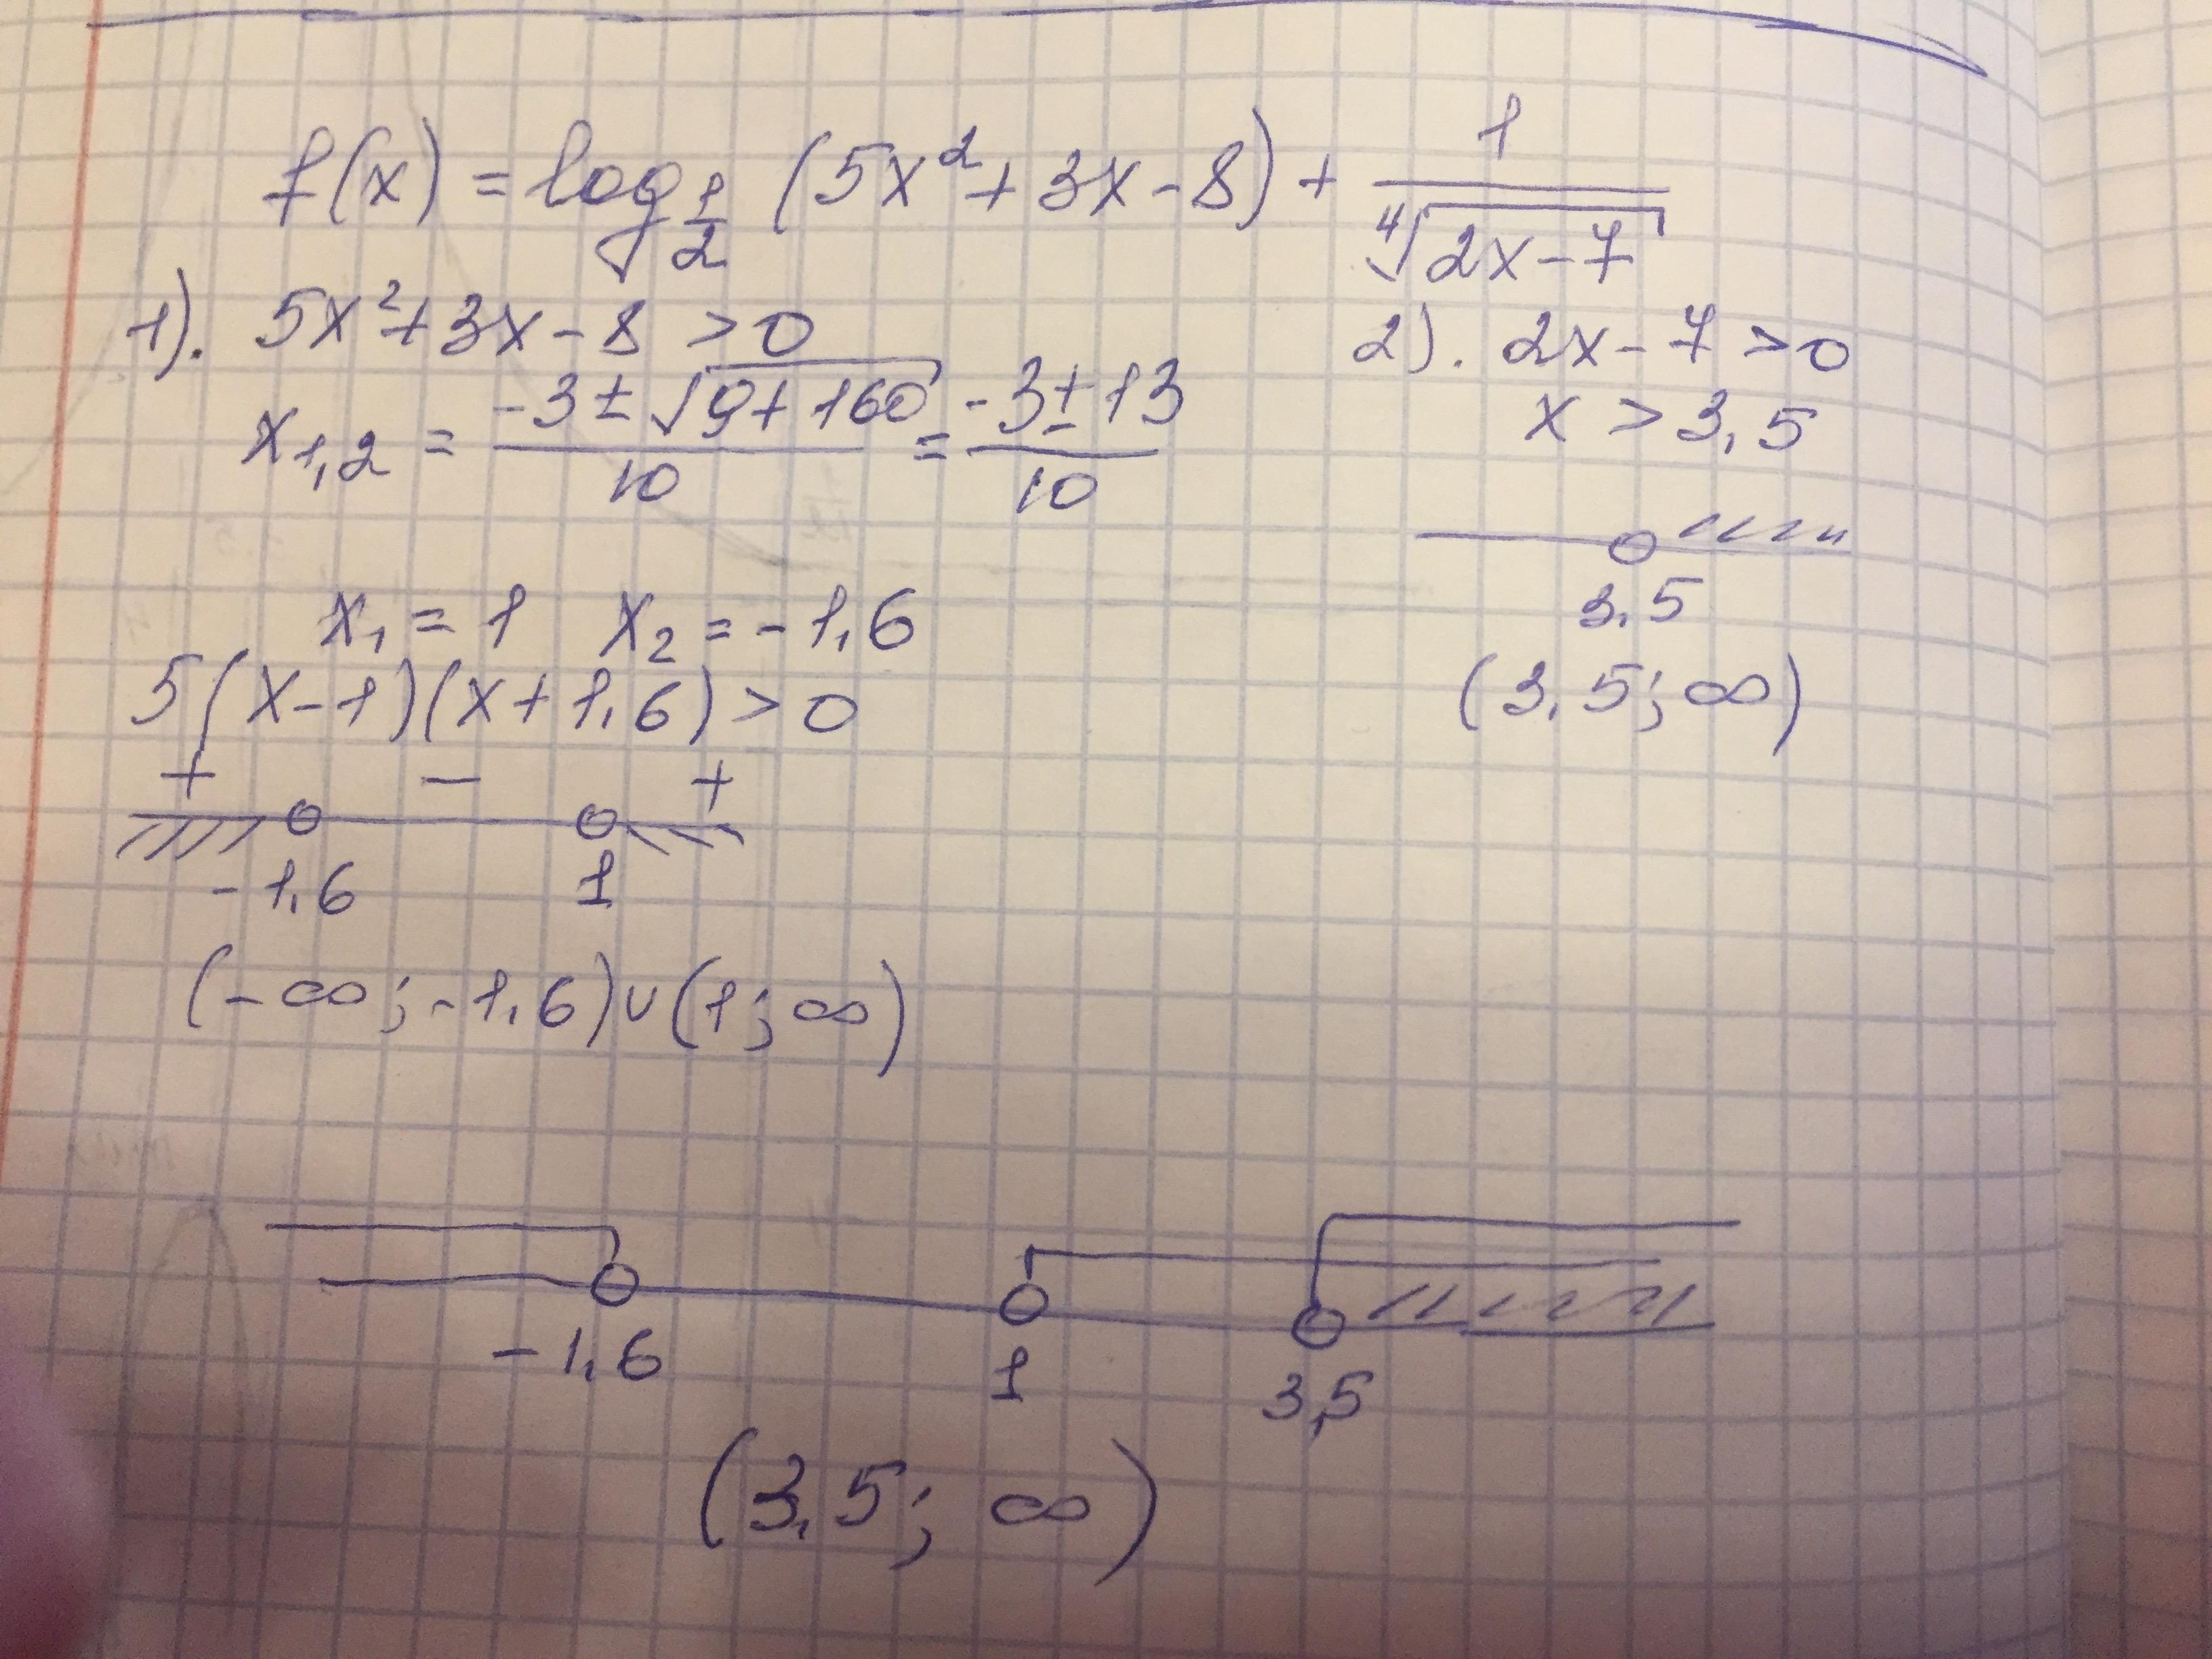 f(x) = log_{1/2} (5x² + 3x - 8) + 1/⁴√(2x-7)
1). 5x² + 3x - 8 > 0
x_{1,2} = (-3 ± √(9+160))/10 = (-3 ± 13)/10
x₁ = 1 x₂ = -1,6
5(x-1)(x+1,6) > 0
+ - +
-1,6 1
(-∞; -1,6) ∪ (1; ∞)
2). 2x - 7 > 0
x > 3,5
3,5
(3,5; ∞)
-1,6 1 3,5
(3,5; ∞)